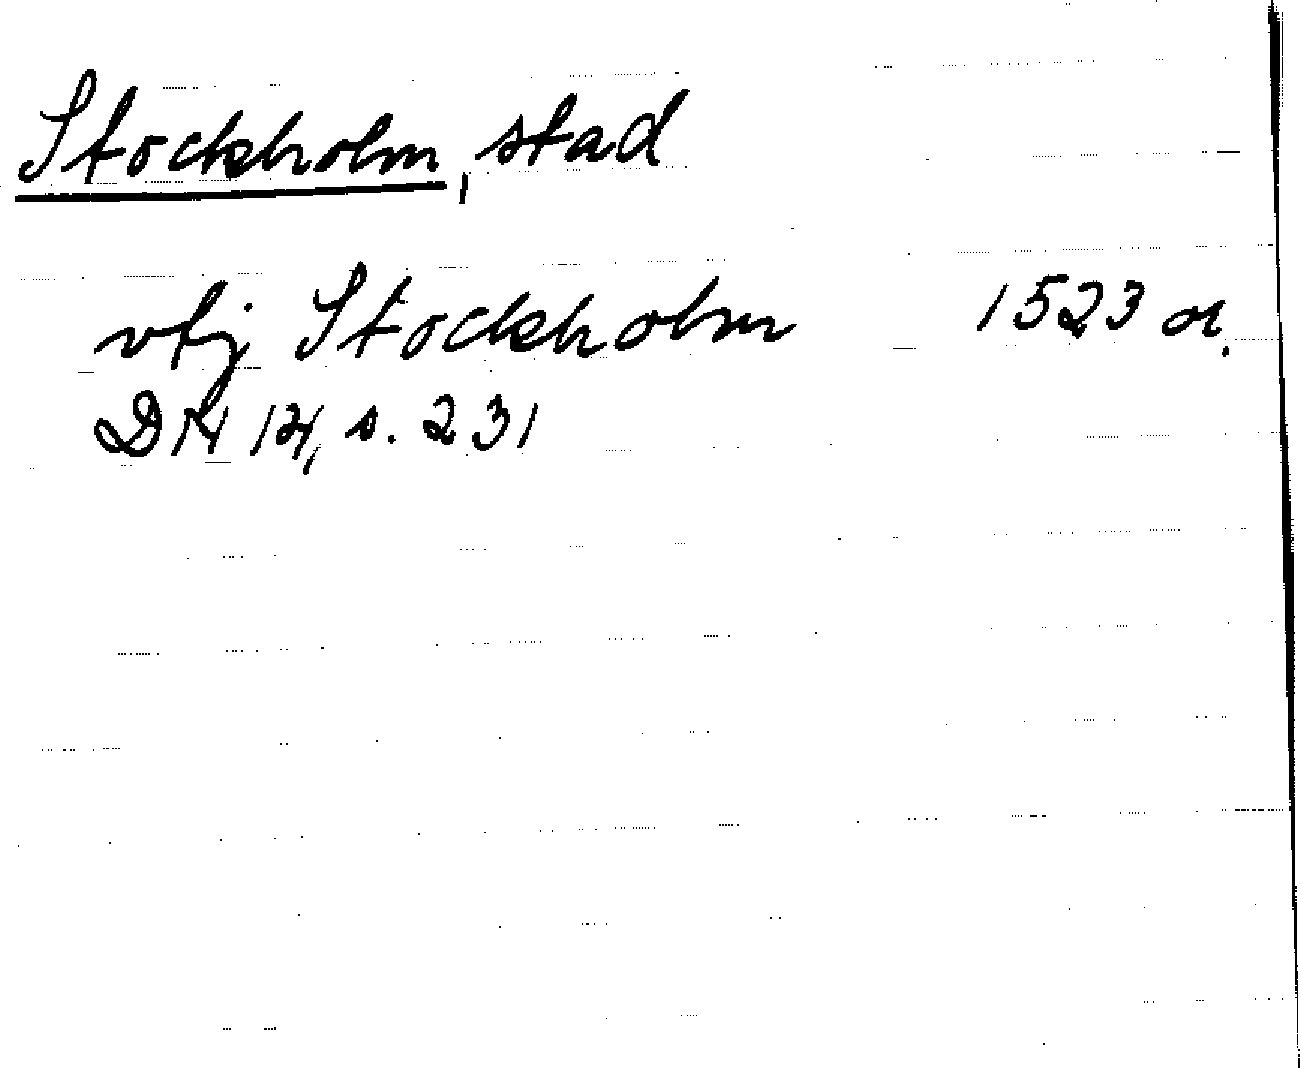 Stockholm, stad
vtj Stockholm 1523 or.
DN 14, s. 231